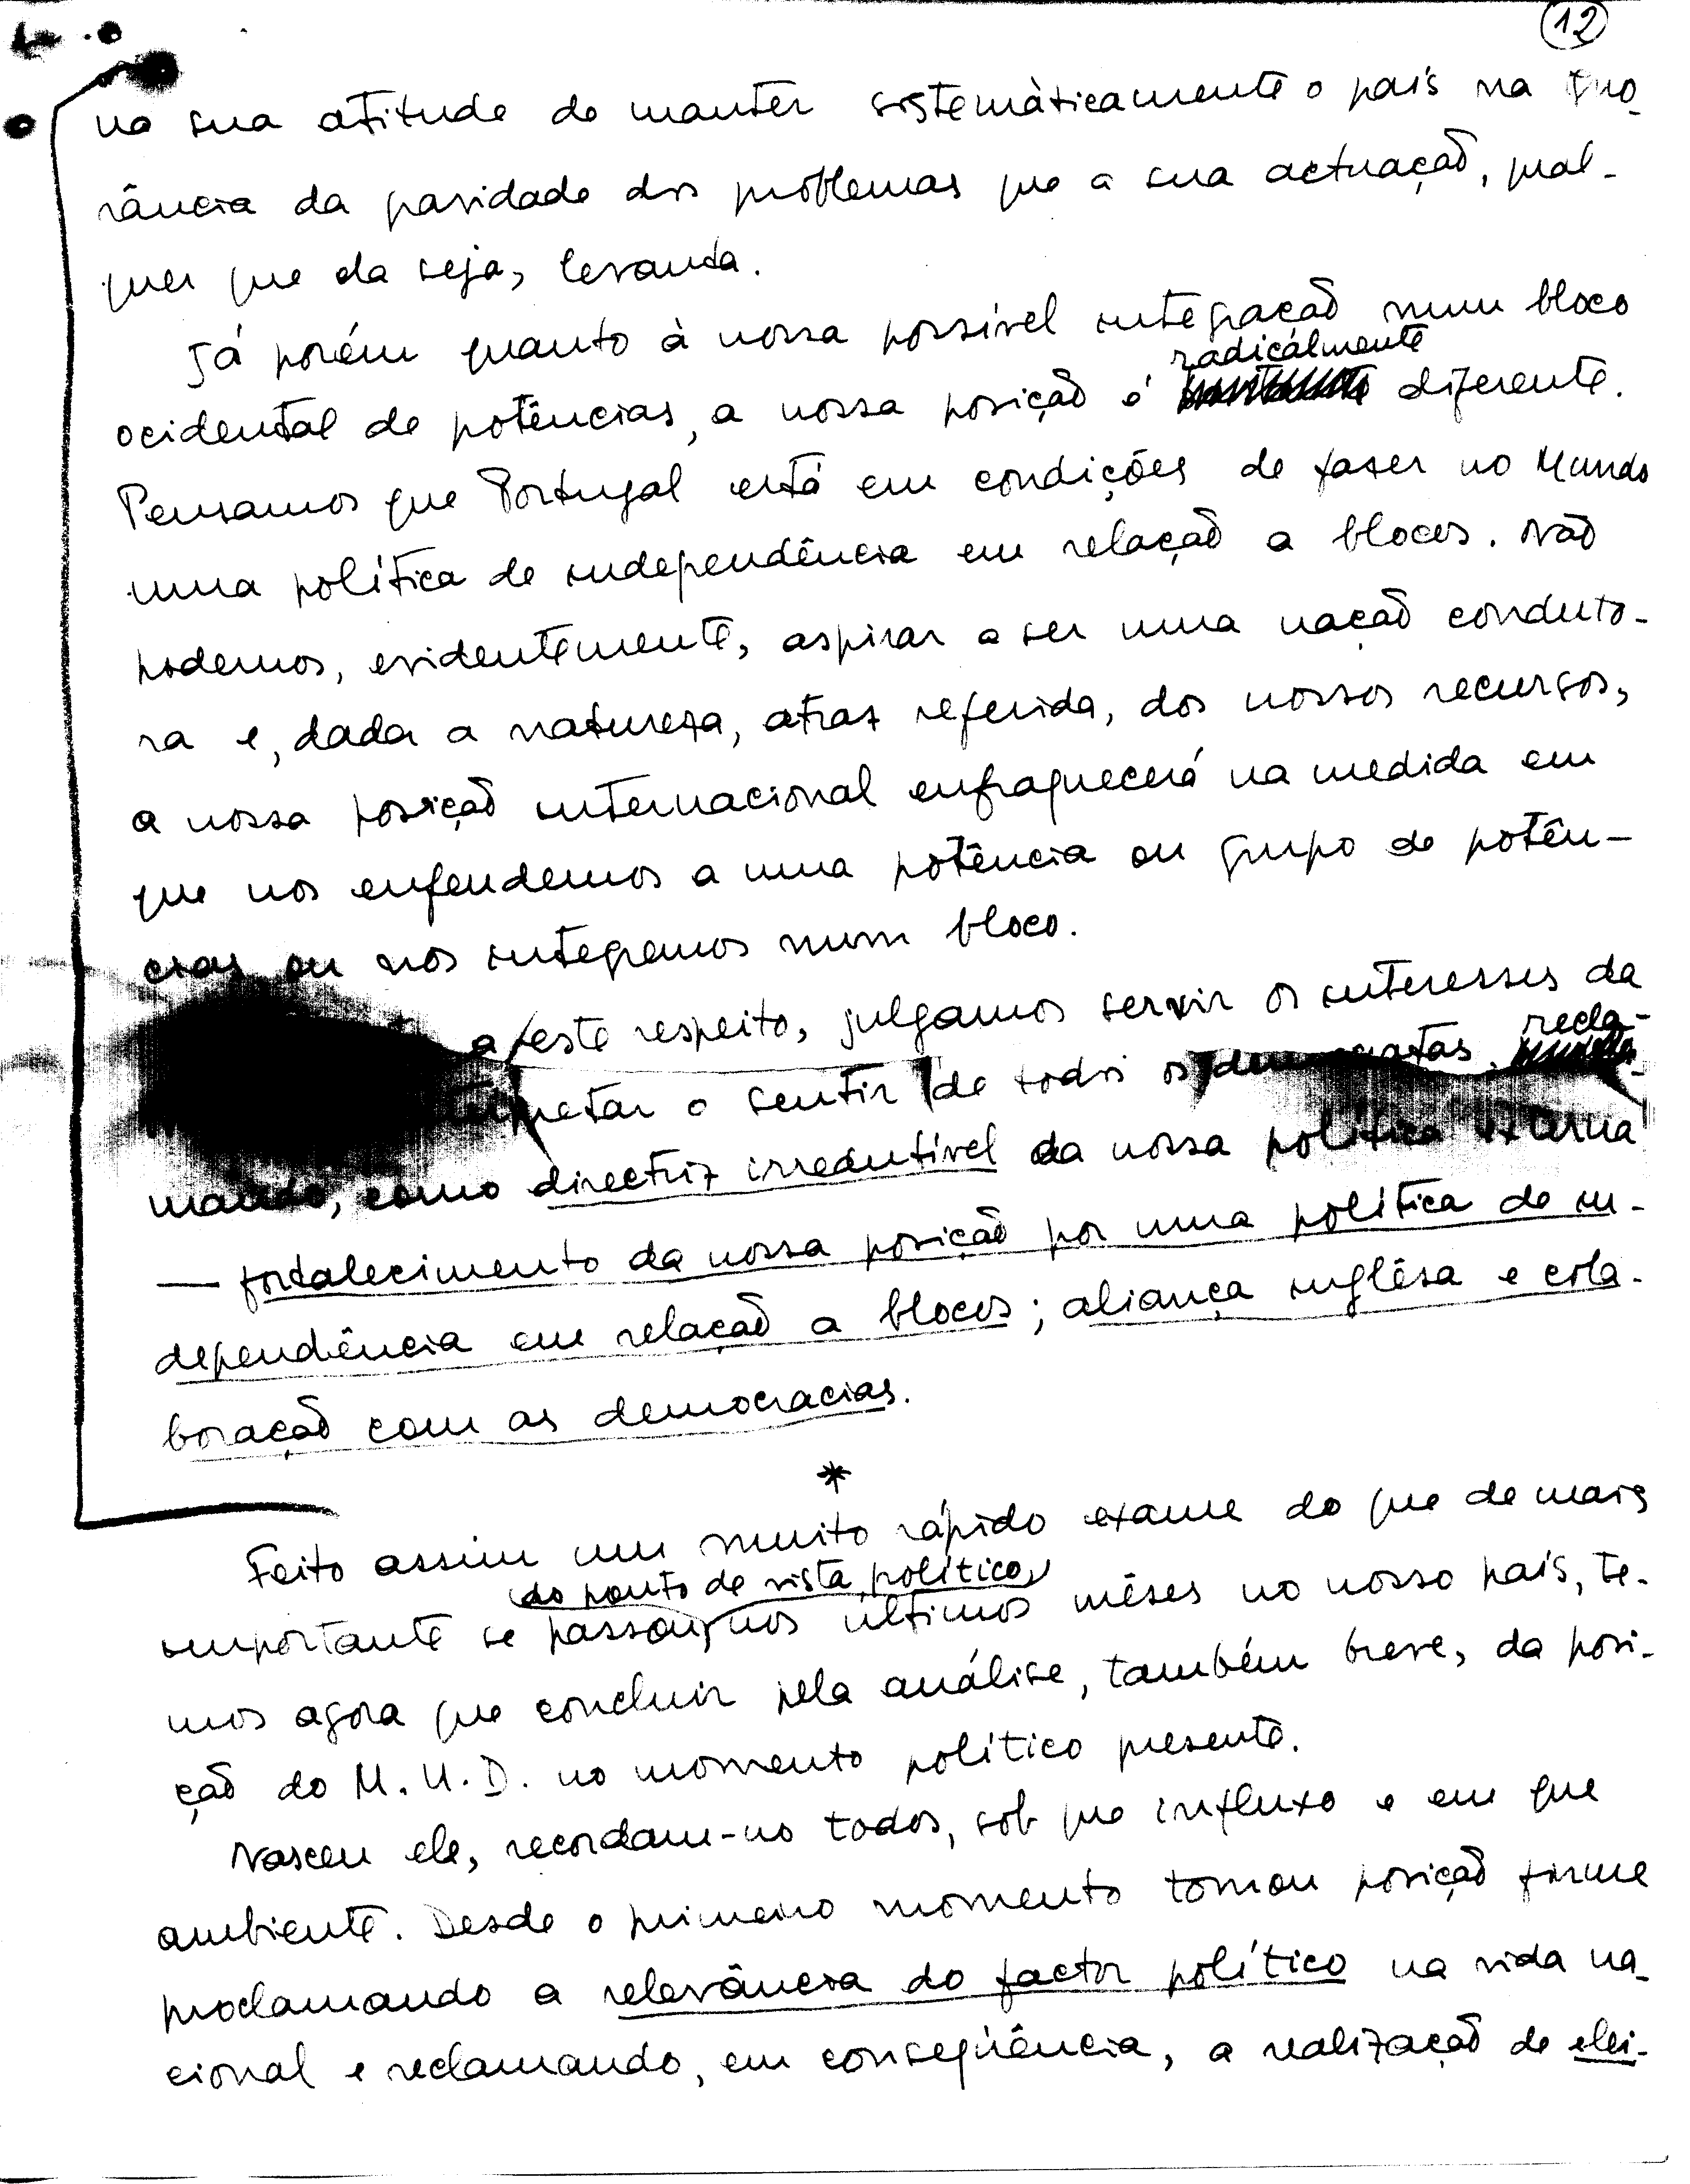 12
na sua atitude de manter sistemàticamente o país na igno-
rância da gravidade dos problemas que a sua actuação, qual-
quer que ela seja, levanta.
Já porém quanto à nossa possível integração num bloco
radicálmente
ocidental de potências, a nossa posição é diferente.
Pensamos que Portugal está em condições de fazer no Mundo
uma política de independência em relação a blocos. Não
podemos, evidentemente, aspirar a ser uma nação conduto-
ra e, dada a natureza, atraz referida, dos nossos recursos,
a nossa posição internacional enfraquecerá na medida em
que nos enfeudemos a uma potência ou grupo de potên-
cias ou nos integremos num bloco.
a este respeito, julgamos servir os interesses da
recla-
o sentir de todos os democratas,
mando, como directriz irredutível da nossa política externa
— fortalecimento da nossa posição por uma política de in-
dependência em relação a blocos; aliança inglêsa e cola-
boração com as democracias.
*
Feito assim um muito rápido exame do que de mais
do ponto de vista político,
importante se passou, nos últimos mêses no nosso país, te-
mos agora que concluir pela análise, também breve, da posi-
ção do M.U.D. no momento político presente.
Nasceu ele, recordam-no todos, sob que influxo e em que
ambiente. Desde o primeiro momento tomou posição firme
proclamando a relevância do factor político na vida na-
cional e reclamando, em conseqüência, a realização de elei-